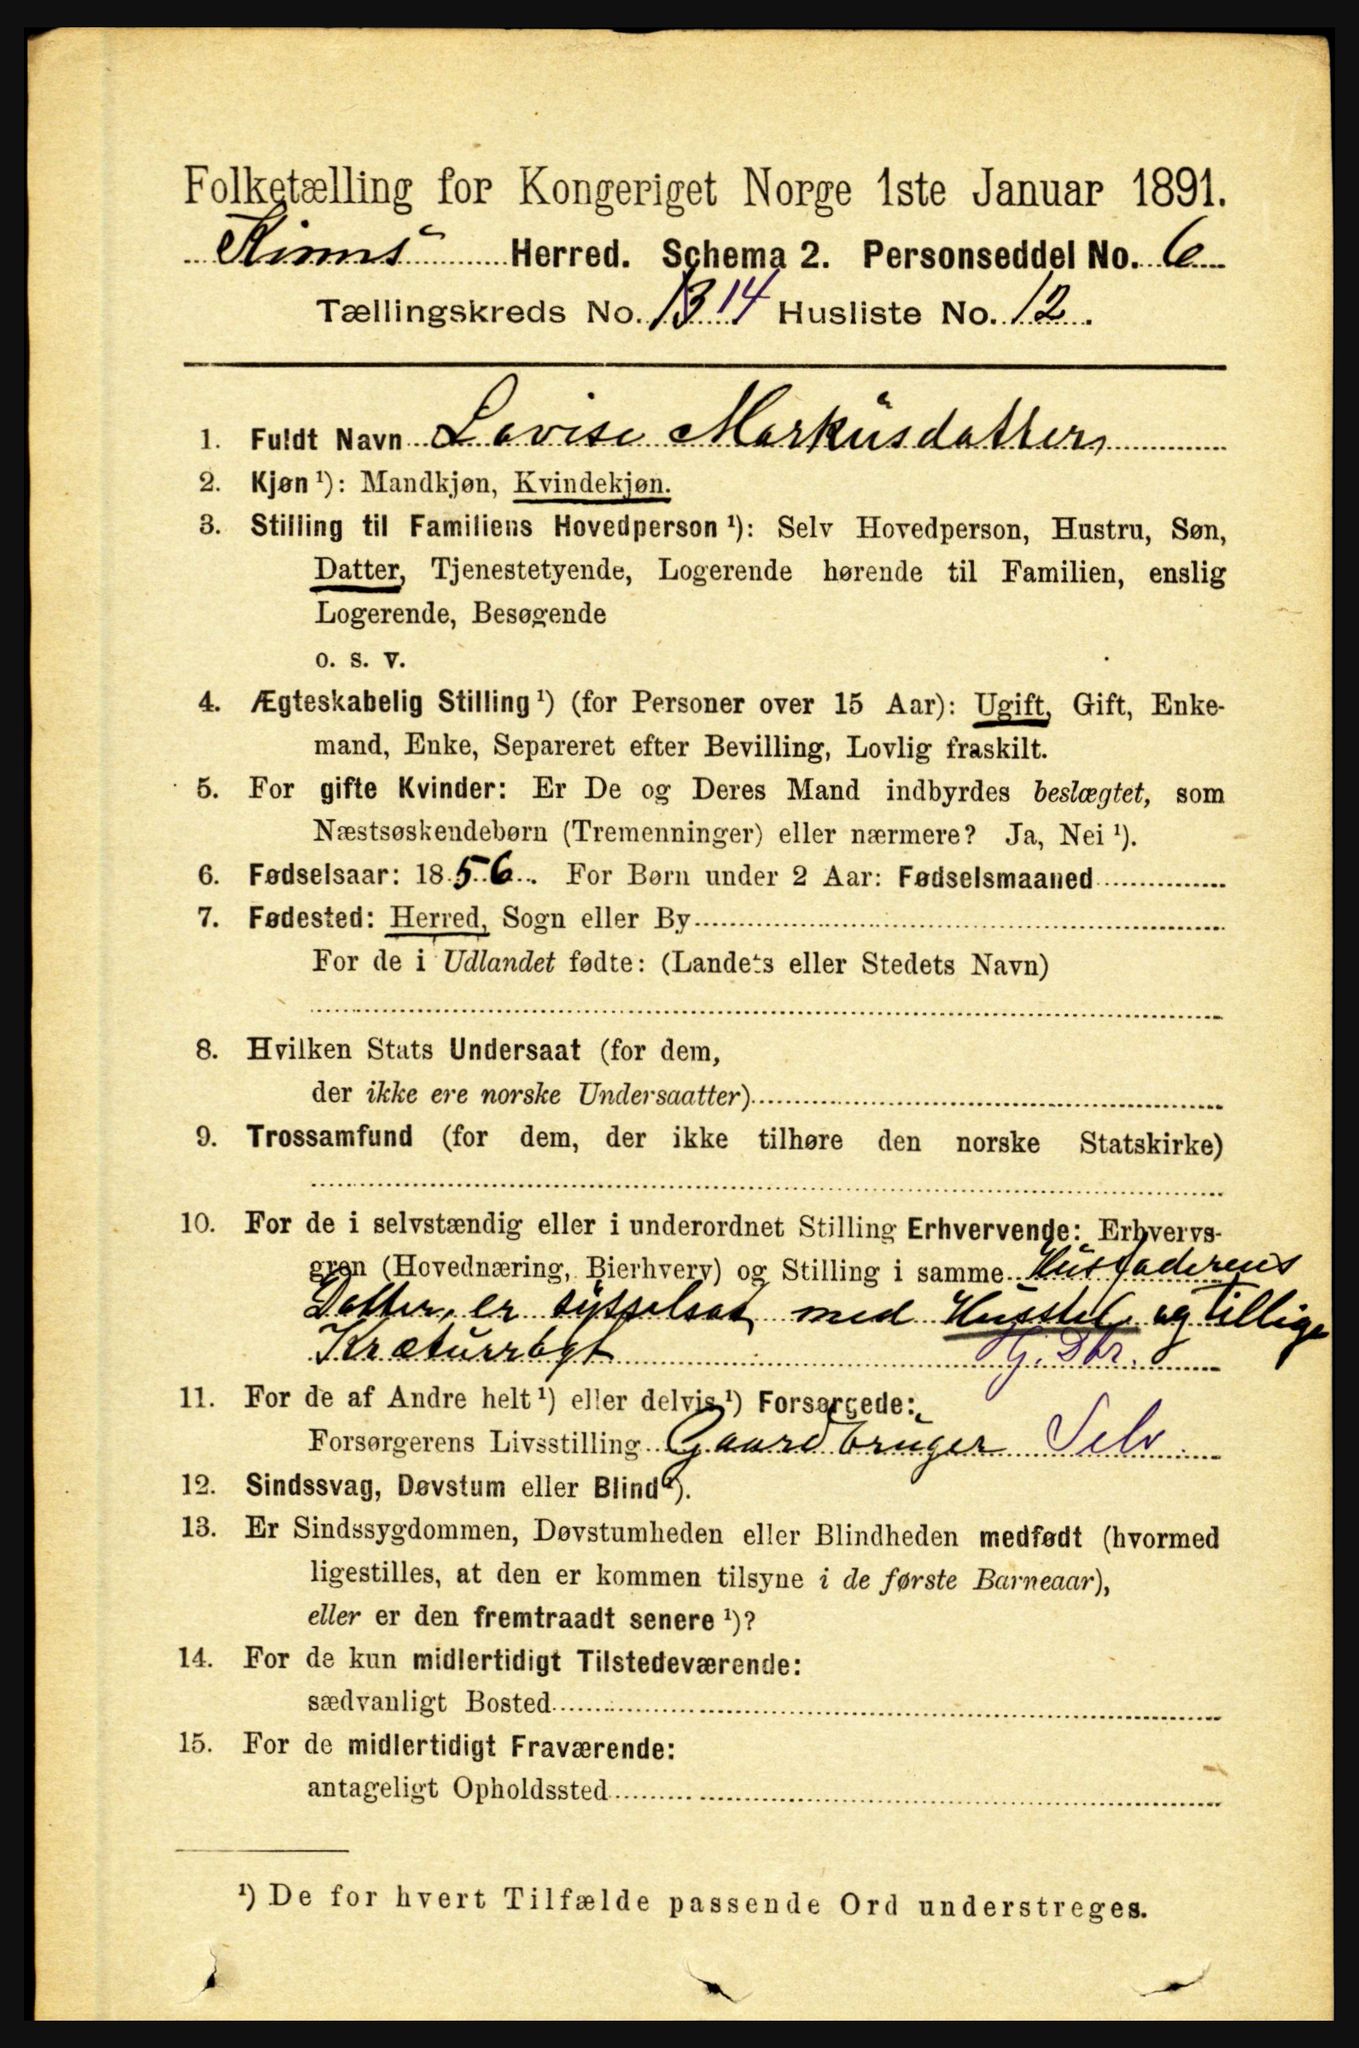 Folketælling for Kongeriget Norge 1ste Januar 1891.
Kinns Herred. Schema 2. Personseddel No. 6
Tællingskreds No. 13 14 Husliste No. 12.
1. Fuldt Navn Lovise Markusdatter
2. Kjøn ¹): Mandkjøn, Kvindekjøn.
3. Stilling til Familiens Hovedperson ¹): Selv Hovedperson, Hustru, Søn,
Datter, Tjenestetyende, Logerende hørende til Familien, enslig
Logerende, Besøgende
o. s. v.
4. Ægteskabelig Stilling ¹) (for Personer over 15 Aar): Ugift, Gift, Enke-
mand, Enke, Separeret efter Bevilling, Lovlig fraskilt.
5. For gifte Kvinder: Er De og Deres Mand indbyrdes beslægtet, som
Næstsøskendebørn (Tremenninger) eller nærmere? Ja, Nei ¹).
6. Fødselsaar: 1856. For Børn under 2 Aar: Fødselsmaaned
7. Fødested: Herred, Sogn eller By
For de i Udlandet fødte: (Landets eller Stedets Navn)
8. Hvilken Stats Undersaat (for dem,
der ikke ere norske Undersaatter)
9. Trossamfund (for dem, der ikke tilhøre den norske Statskirke)
10. For de i selvstændig eller i underordnet Stilling Erhvervende: Erhvervs-
gren (Hovednæring, Bierhverv) og Stilling i samme Husfaderens
Datter, er sysselsat med Husstel og tillige
Kræturrøgt G. Dtr.
11. For de af Andre helt ¹) eller delvis ¹) Forsørgede:
Forsørgerens Livsstilling Gaardbruger Selv
12. Sindssvag, Døvstum eller Blind ¹).
13. Er Sindssygdommen, Døvstumheden eller Blindheden medfødt (hvormed
ligestilles, at den er kommen tilsyne i de første Barneaar),
eller er den fremtraadt senere ¹)?
14. For de kun midlertidigt Tilstedeværende:
sædvanligt Bosted
15. For de midlertidigt Fraværende:
antageligt Opholdssted
¹) De for hvert Tilfælde passende Ord understreges.